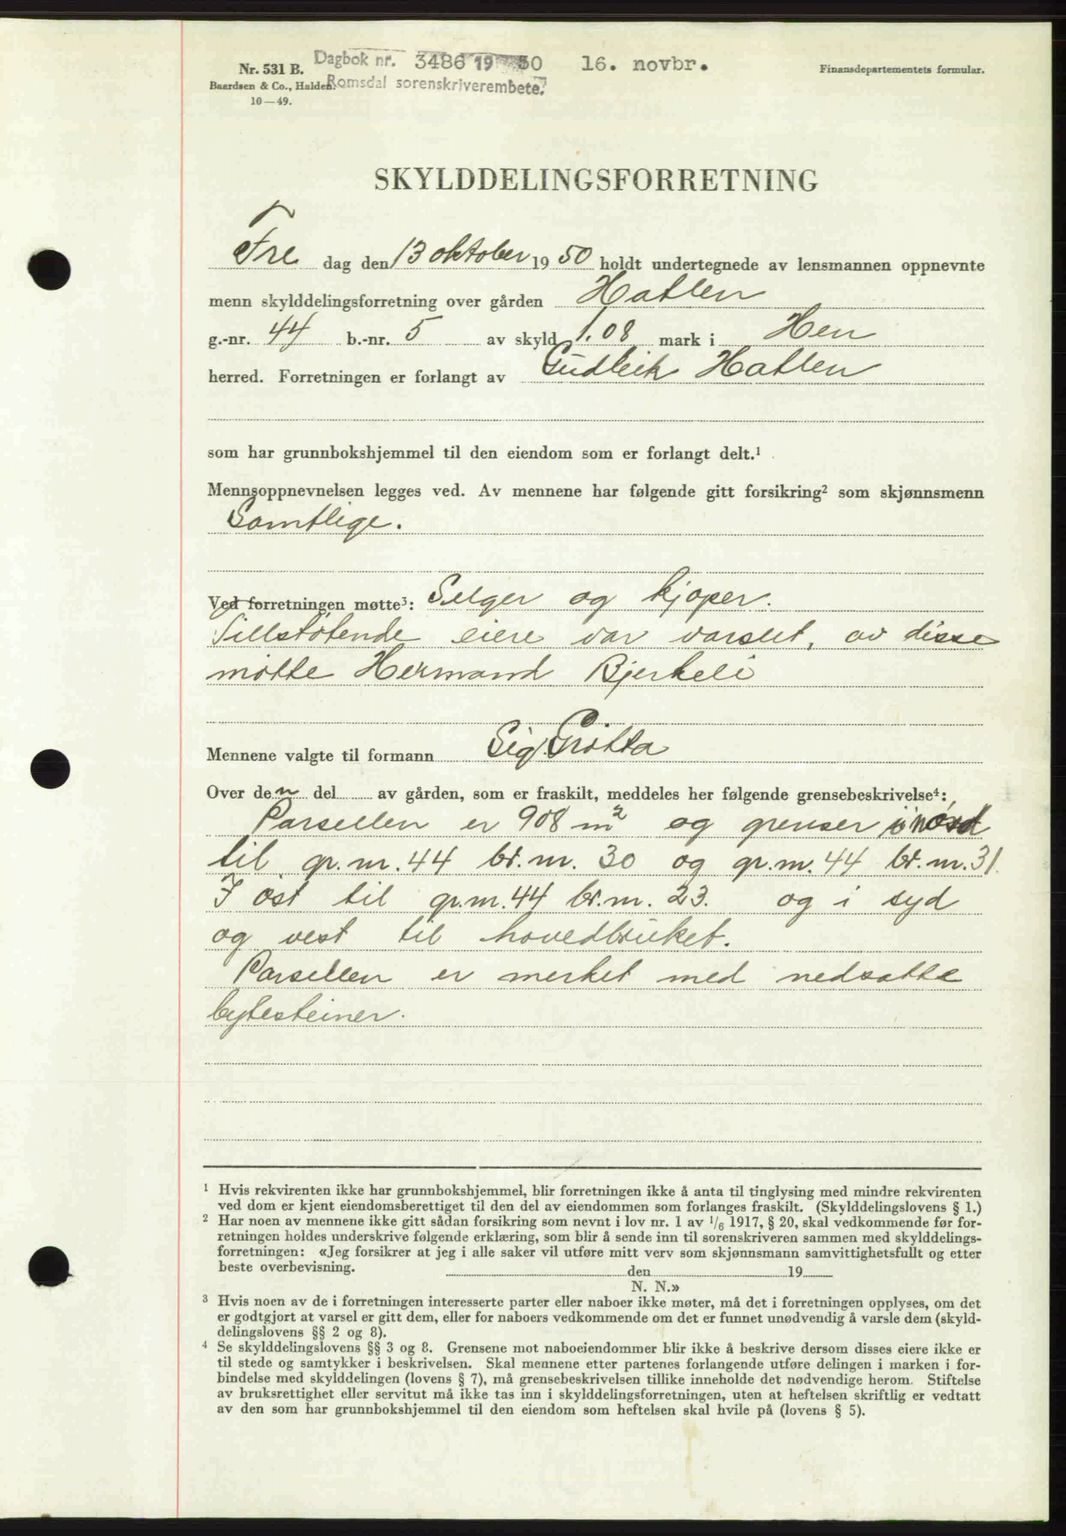 Nr. 531 B.
Baardsen & Co., Halden.
10—49.
Dagbok nr. 3486 1950 16. novbr.
Romsdal sorenskriverembete.
Finansdepartementets formular.
SKYLDDELINGSFORRETNING
Fre dag den 13 oktober 1950 holdt undertegnede av lensmannen oppnevnte
menn skylddelingsforretning over gården Hatlen
g.-nr. 44 b.-nr. 5 av skyld 1.08 mark i Hen
herred. Forretningen er forlangt av Gudleik Hatlen
som har grunnbokshjemmel til den eiendom som er forlangt delt.¹
Mennsoppnevnelsen legges ved. Av mennene har følgende gitt forsikring² som skjønnsmenn
Samtlige.
Ved forretningen møtte³: Selger og kjøper.
Tillstøtende eiere var varslet, av disse
møtte Hermand Bjerkeli
Mennene valgte til formann Sig. Grøtta
Over den del av gården, som er fraskilt, meddeles her følgende grensebeskrivelse⁴:
Parsellen er 908 m² og grenser i nord
til gr.nr. 44 br.nr. 30 og gr.nr. 44 br.nr. 31.
I øst til gr.nr. 44 br.nr. 23. og i syd
og vest til hovedbruket.
Parsellen er merket med nedsatte
bytesteiner.
¹ Hvis rekvirenten ikke har grunnbokshjemmel, blir forretningen ikke å anta til tinglysing med mindre rekvirenten
ved dom er kjent eiendomsberettiget til den del av eiendommen som forlanges fraskilt. (Skylddelingslovens § 1.)
² Har noen av mennene ikke gitt sådan forsikring som nevnt i lov nr. 1 av 1/6 1917, § 20, skal vedkommende før for-
retningen holdes underskrive følgende erklæring, som blir å sende inn til sorenskriveren sammen med skylddelings-
forretningen: «Jeg forsikrer at jeg i alle saker vil utføre mitt verv som skjønnsmann samvittighetsfullt og etter
beste overbevisning. den 19
N. N.»
³ Hvis noen av de i forretningen interesserte parter eller naboer ikke møter, må det i forretningen opplyses, om det
er godtgjort at varsel er gitt dem, eller for naboers vedkommende om det er funnet unødvendig å varsle dem (skyld-
delingslovens §§ 2 og 8).
⁴ Se skylddelingslovens §§ 3 og 8. Grensene mot naboeiendommer blir ikke å beskrive dersom disses eiere ikke er
til stede og samtykker i beskrivelsen. Skal mennene etter partenes forlangende utføre delingen i marken i for-
bindelse med skylddelingen (lovens § 7), må grensebeskrivelsen tillike inneholde det nødvendige herom. Stiftelse
av bruksrettighet eller servitut må ikke tas inn i skylddelingsforretningen, uten at heftelsen skriftlig er vedtatt
av den som har grunnbokshjemmel til den eiendom som heftelsen skal hvile på (lovens § 5).